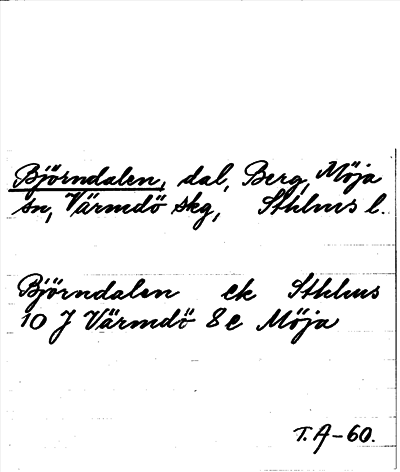 Björndalen, dal, Berg, Möja
sn, Värmdö skg, Sthlms l.
Björndalen ek Sthlms
10 J Värmdö 8e Möja
T.A-60.